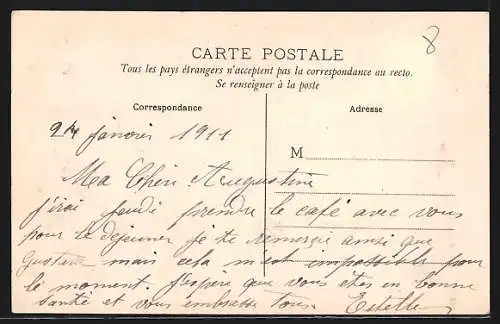 8
CARTE POSTALE
Tous les pays étrangers n'acceptent pas la correspondance au recto.
Se renseigner à la poste
Correspondance
Adresse
M
janvier 1911
Ma Chère Augustine
j'irai jeudi prendre le café avec vous
pour le déjeuner je te remercie ainsi que
Gustave mais cela m'est impossible pour
le moment. J'espère que vous êtes en bonne
santé et vous embrasse tous. Estelle